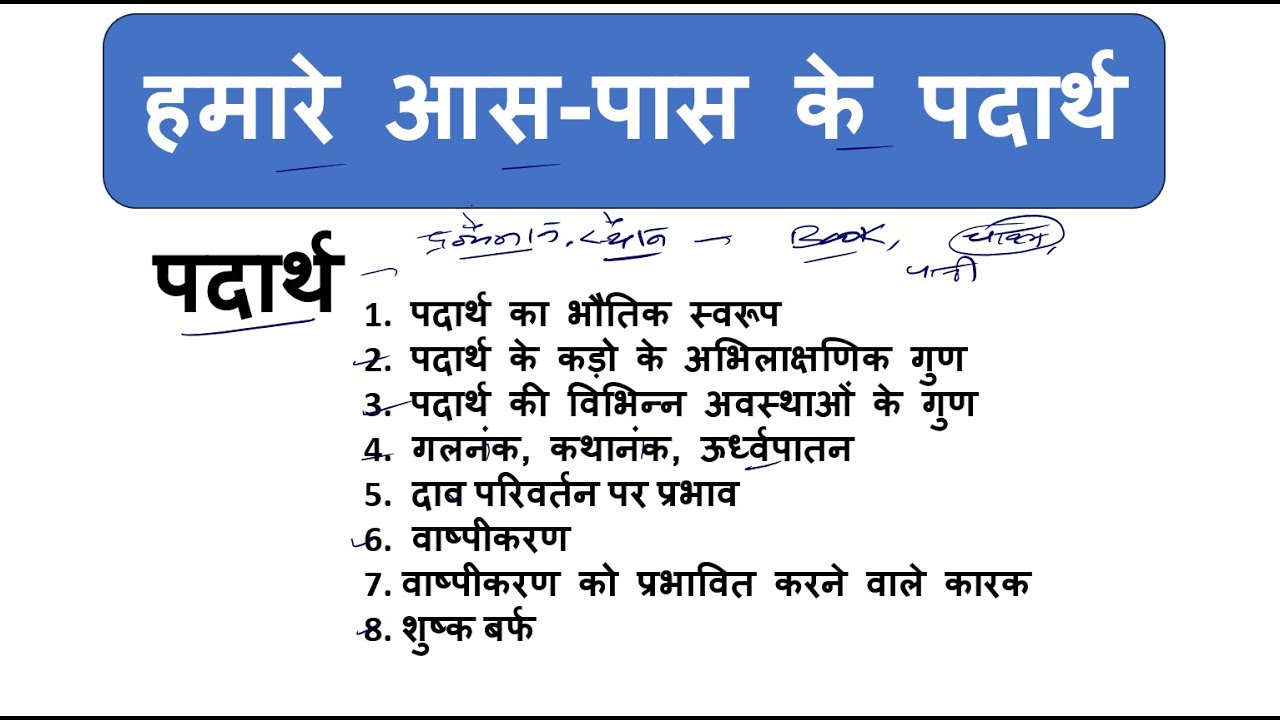 हमारे आस-पास के पदार्थ
Book, चावल,
पानी
पदार्थ
1. पदार्थ का भौतिक स्वरूप
2. पदार्थ के कड़ो के अभिलाक्षणिक गुण
3. पदार्थ की विभिन्न अवस्थाओं के गुण
4. गलनंक, कथानंक, ऊर्ध्वपातन
5. दाब परिवर्तन पर प्रभाव
6. वाष्पीकरण
7. वाष्पीकरण को प्रभावित करने वाले कारक
8. शुष्क बर्फ